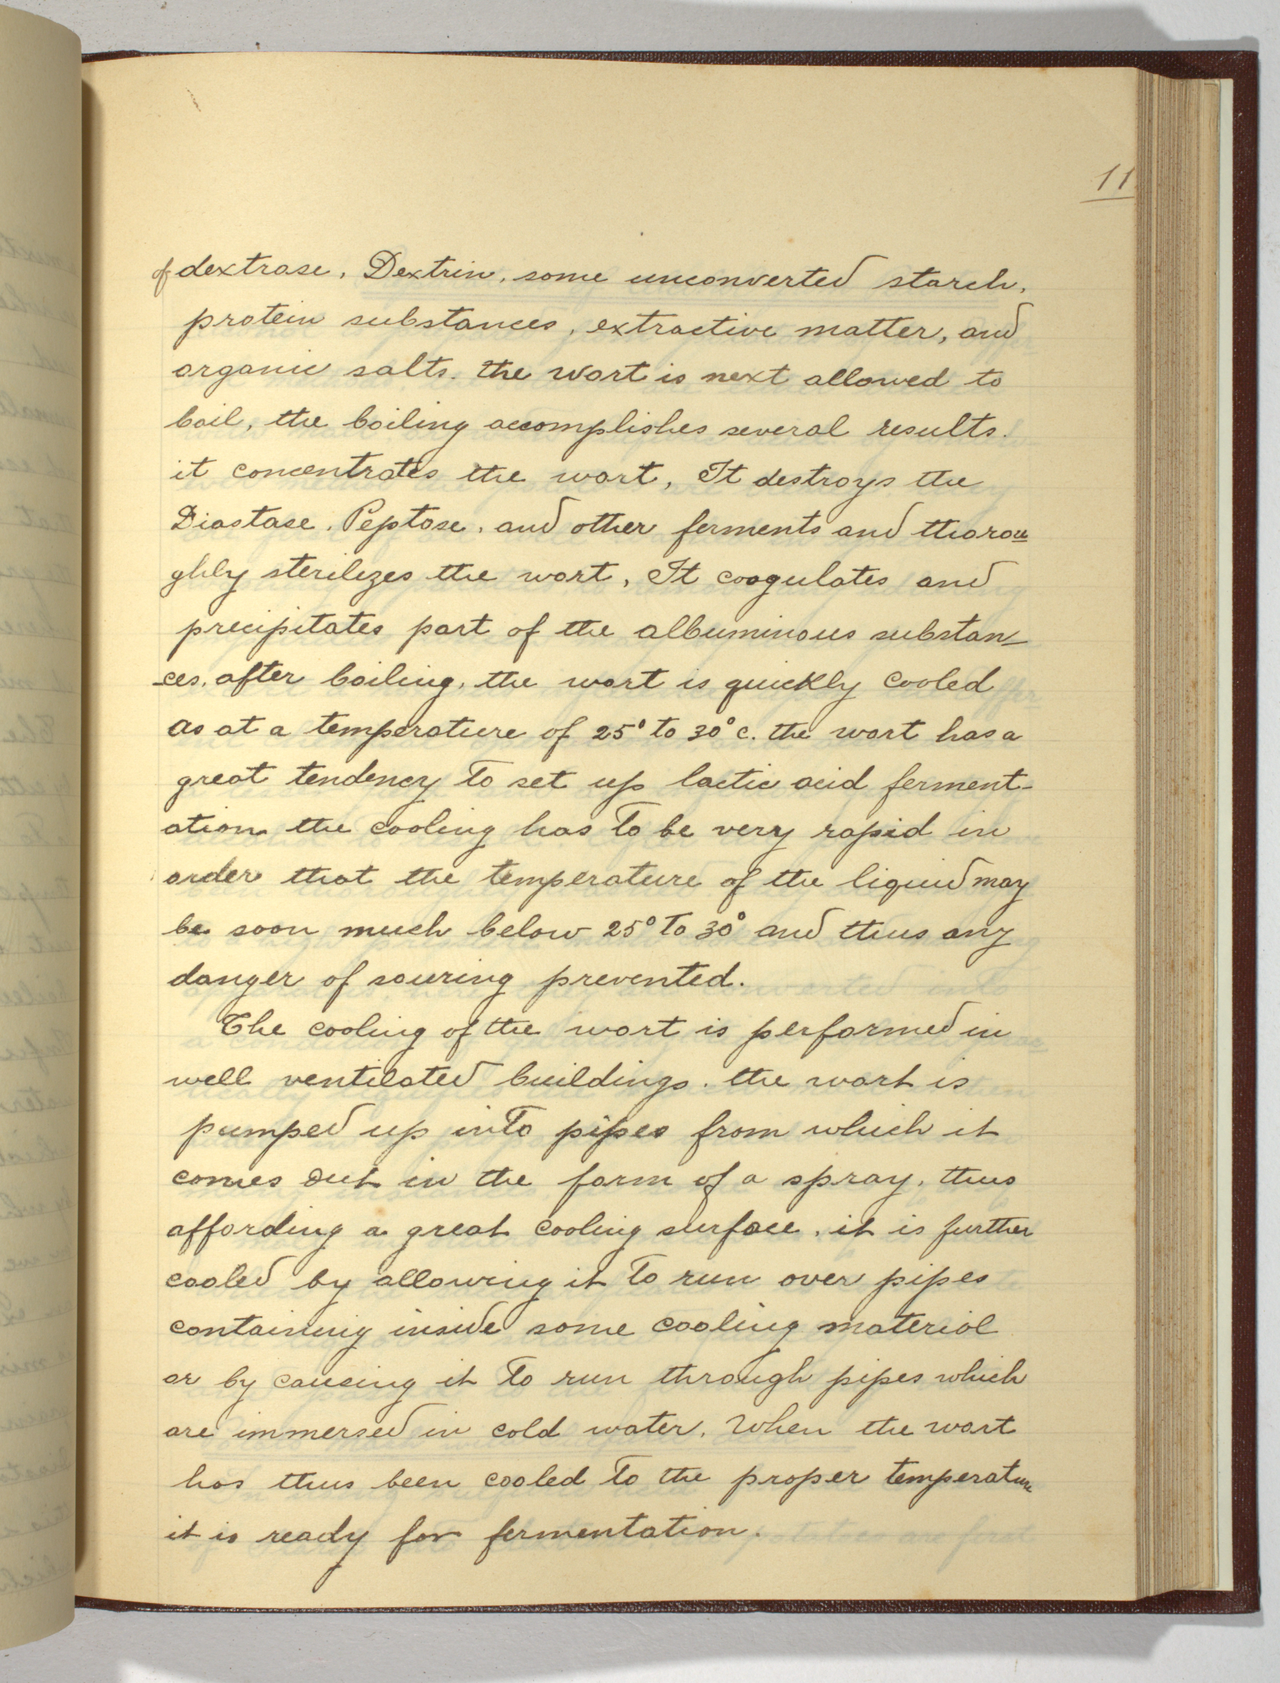 11
of dextrose, Dextrin, some unconverted starch,
protein substances, extractive matter, and
organic salts. the wort is next allowed to
boil, the boiling accomplishes several results.
it concentrates the wort, It destroys the
Diastase, Peptose, and other ferments and thorou
ghly sterilizes the wort, It coagulates and
precipitates part of the albuminous substan-
-ces. after boiling, the wort is quickly cooled
as at a temperature of 25° to 30° c. the wort has a
great tendency to set up lactic acid ferment-
ation the cooling has to be very rapid in
order that the temperature of the liquid may
be soon much below 25° to 30° and thus any
danger of souring prevented.
The cooling of the wort is performed in
well ventilated buildings. the wort is
pumped up into pipes from which it
comes out in the form of a spray, thus
affording a great cooling surface, it is further
cooled by allowing it to run over pipes
containing inside some cooling material
or by causing it to run through pipes which
are immersed in cold water. When the wort
has thus been cooled to the proper temperature
it is ready for fermentation.